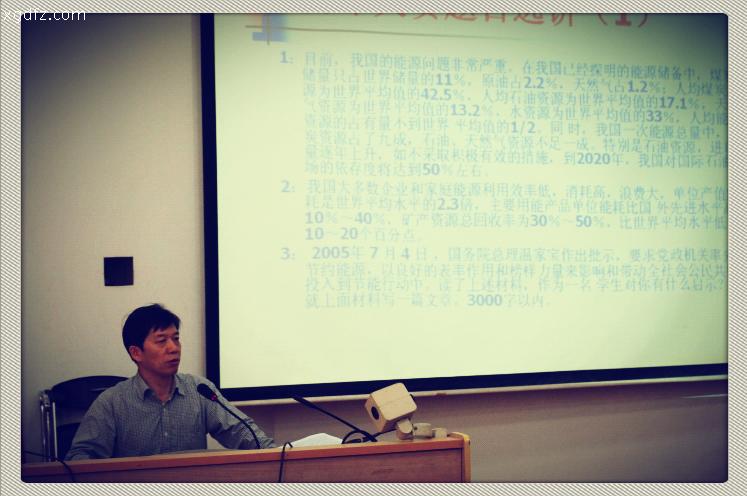 xadfz.com
（1）
1：目前，我国的能源问题非常严重。在我国已经探明的能源储备中，煤炭
储量只占世界储量的11%，原油占2.2%，天然气占1.2%；人均煤炭
源为世界平均值的42.5%，人均石油资源为世界平均值的17.1%，天
气资源为世界平均值的13.2%，水资源为世界平均值的33%，人均能
资源的占有量不到世界 平均值的1/2。同时，我国一次能源总量中，
炭资源占了九成，石油、天然气资源不足一成。特别是石油资源，进
量逐年上升，如不采取积极有效的措施，到2020年，我国对国际石油
场的依存度将达到50%左右。
2：我国大多数企业和家庭能源利用效率低，消耗高，浪费大，单位产值
耗是世界平均水平的2.3倍，主要用能产品单位能耗比国 外先进水平
10%～40%，矿产资源总回收率为30%～50%，比世界平均水平低
10～20个百分点。
3：2005年7月4日，国务院总理温家宝作出批示，要求党政机关率先
节约能源，以良好的表率作用和榜样力量来影响和带动全社会公民共
投入到节能行动中。读了上述材料，作为一名 学生对你有什么启示？
就上面材料写一篇文章。3000字以内。